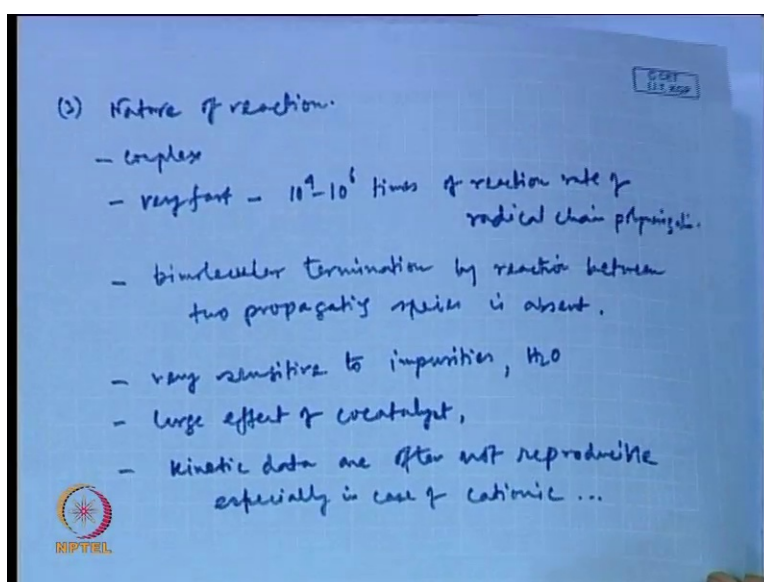 CCET
I.I.T. KGP
(3) Nature of reaction.
- complex
- very fast - 10⁴-10⁶ times of reaction rate of
radical chain polymerization.
- bimolecular termination by reaction between
two propagating species is absent.
- very sensitive to impurities, H₂O
- large effect of cocatalyst,
- kinetic data are often not reproducible
especially in case of cationic ...
NPTEL